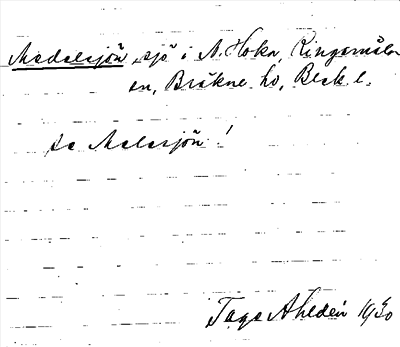 Madelsjön, sjö i N. Hoka, Ringamåla
sn, Bräkne hd, Blek. l.
se Malasjön!
Tage Ahldén 1930